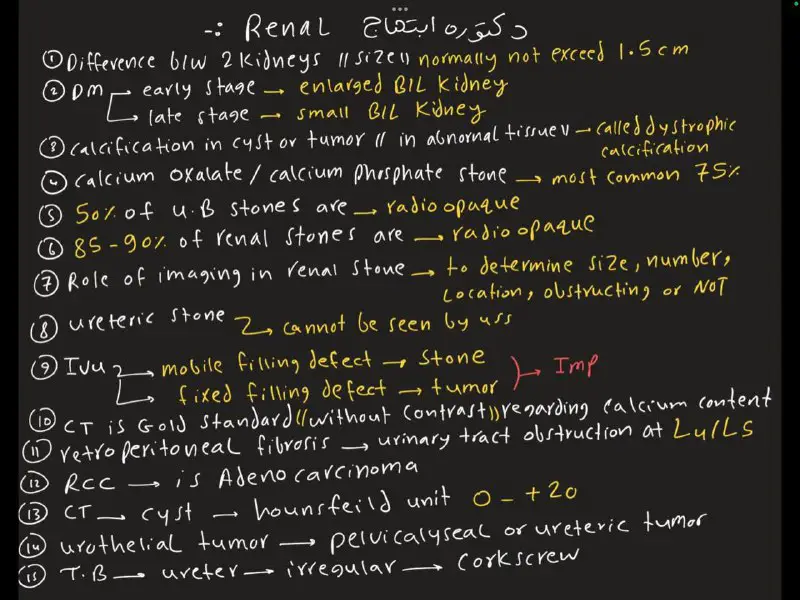 دكتوره ابتهاج Renal :-
① Difference b/w 2 kidneys // size // normally not exceed 1.5 cm
② DM → early stage → enlarged BIL Kidney
→ late stage → small BIL Kidney
③ calcification in cyst or tumor // in abnormal tissue // → called dystrophic
calcification
④ calcium oxalate / calcium phosphate stone → most common 75%
⑤ 50% of U.B stones are → radio opaque
⑥ 85-90% of renal stones are → radio opaque
⑦ Role of imaging in renal stone → to determine size, number,
Location, obstructing or NOT
⑧ ureteric stone → cannot be seen by uss
⑨ IVU → mobile filling defect → stone
→ fixed filling defect → tumor → Imp
⑩ CT is Gold standard // without contrast // regarding calcium content
⑪ retroperitoneal fibrosis → urinary tract obstruction at L4/L5
⑫ RCC → is Adenocarcinoma
⑬ CT → cyst → hounsfeild unit 0 - +20
⑭ urothelial tumor → pelvicalyseal or ureteric tumor
⑮ T.B → ureter → irregular → corkscrew